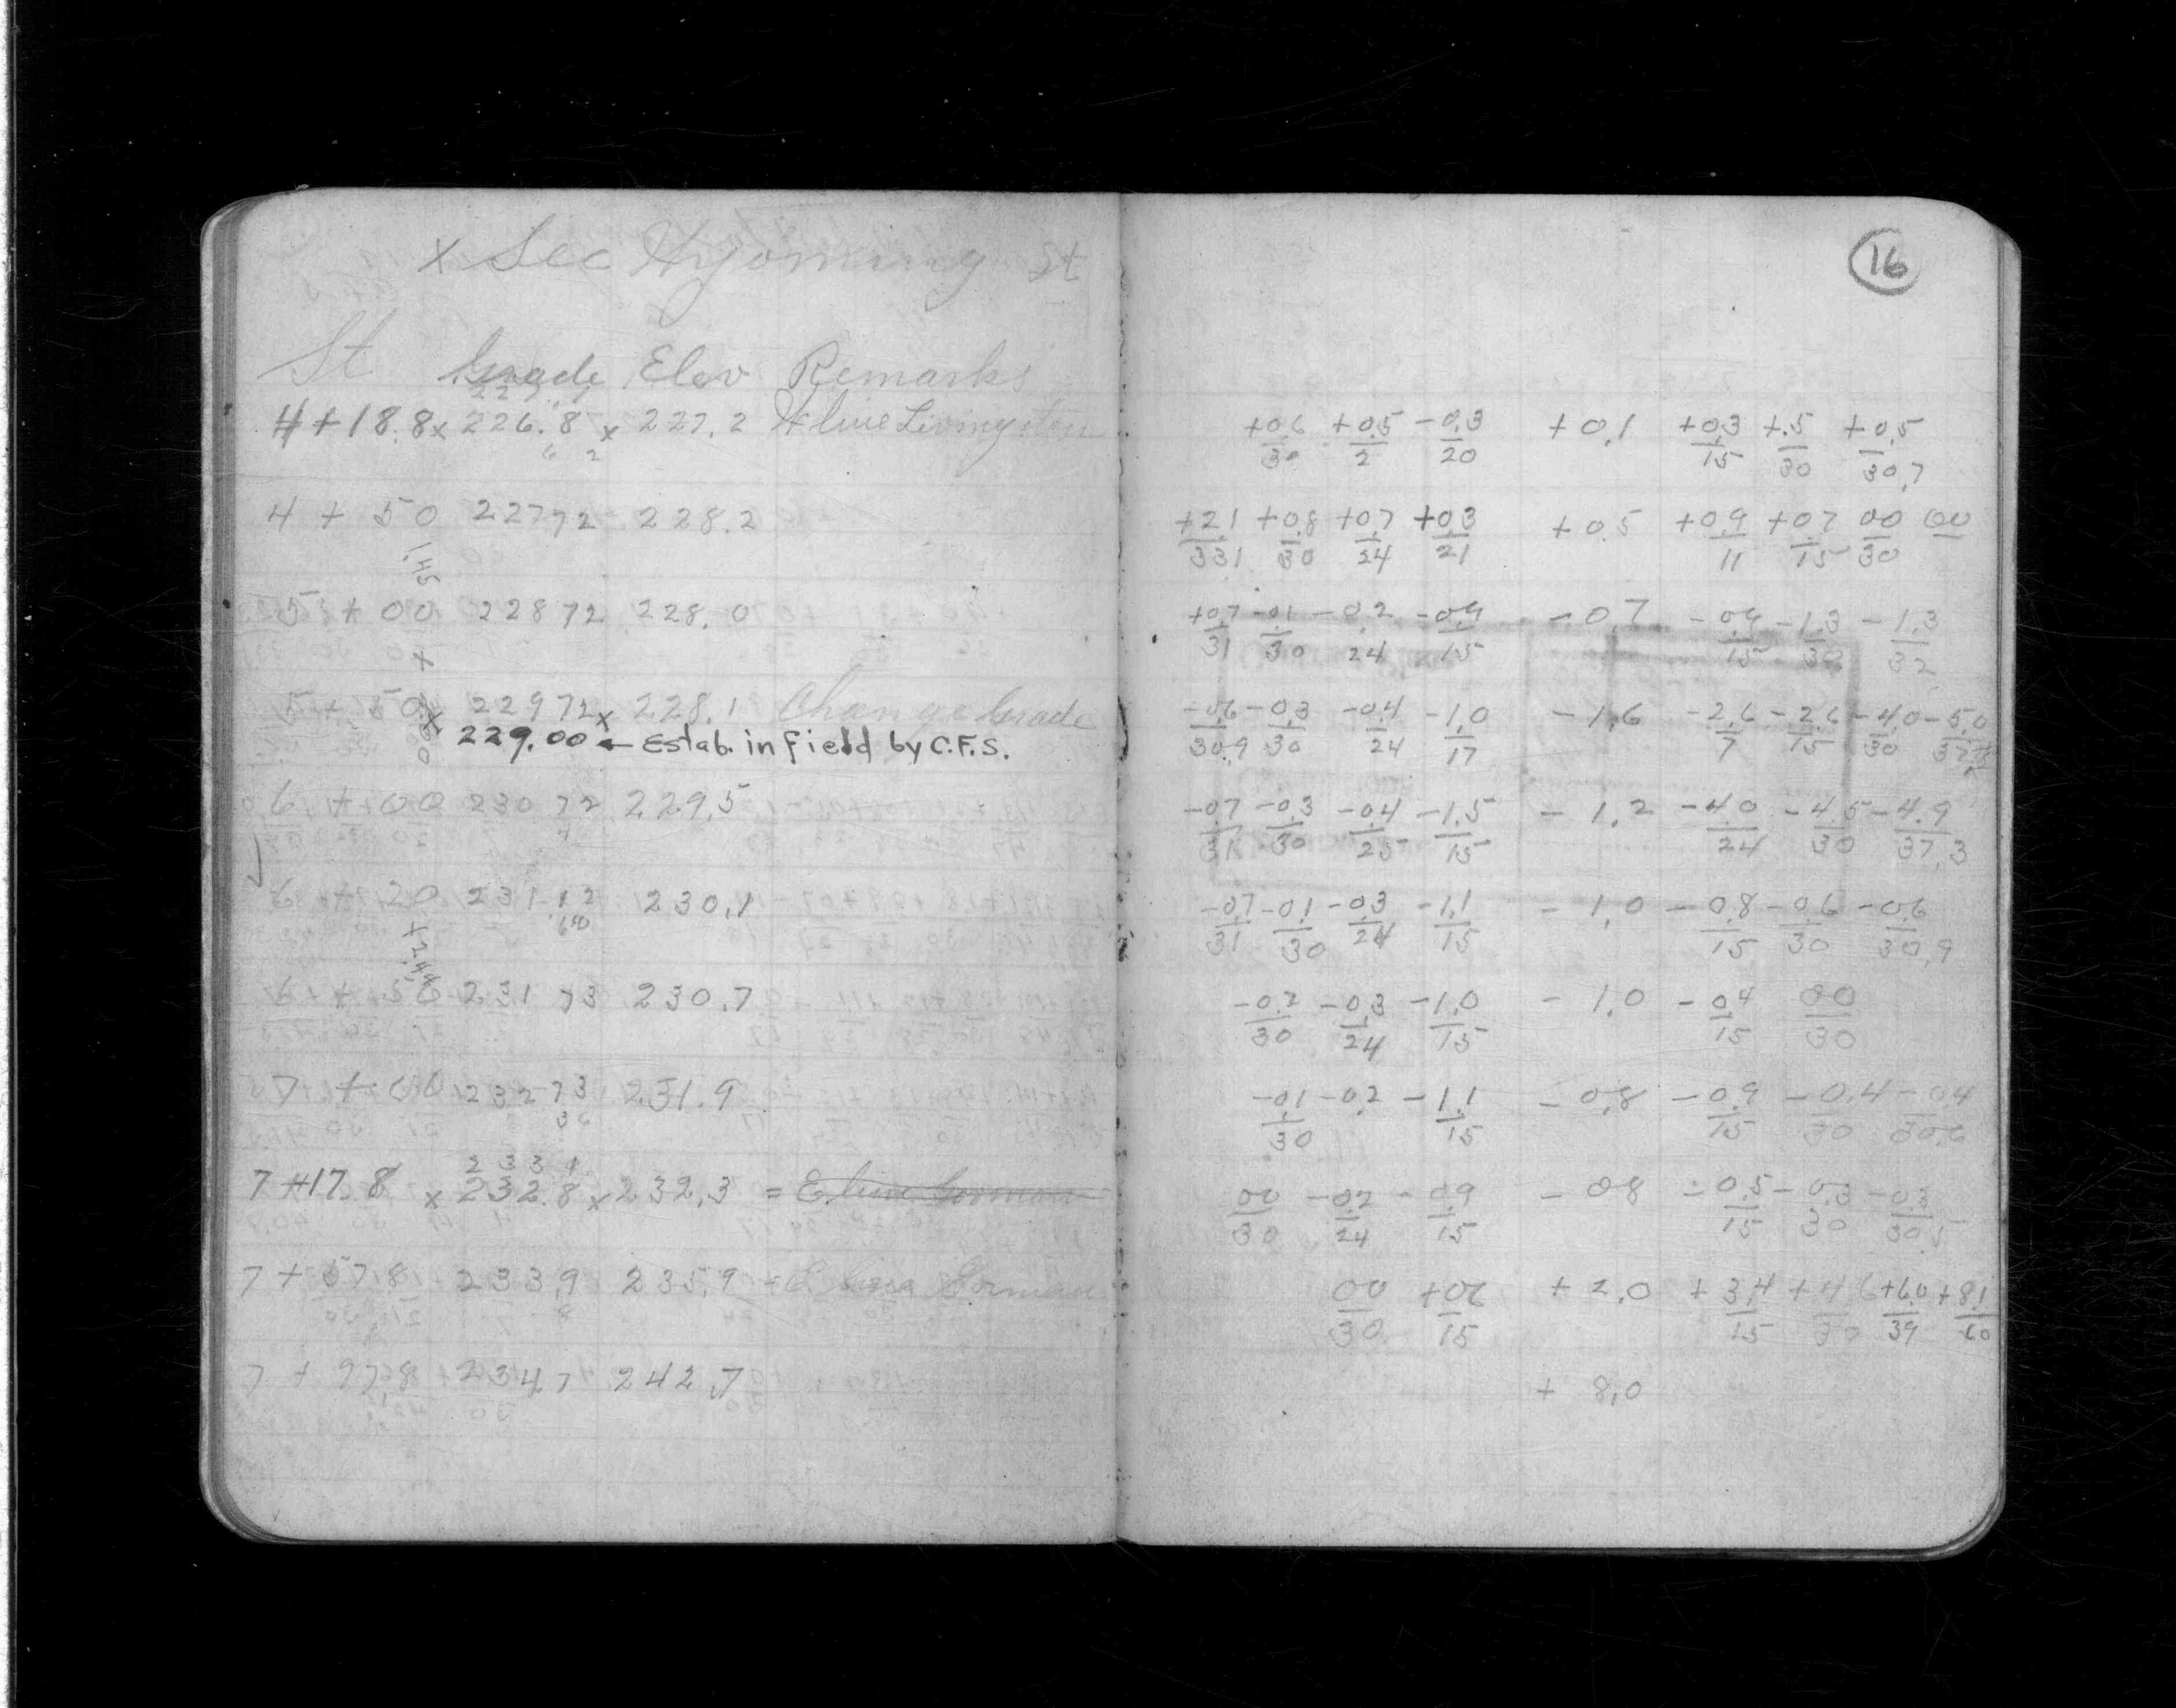 x Sec Wyoming St
St Grade Elev Remarks
4+18.8 x 226.8 x 227.2 W line Livingston
4 + 50 227 72 228.2
5 + 00 228 72 228.0
5 + 50 x 229 72 x 228.1 Change Grade
229.00 ← Estab. in field by C.F.S.
6 + 00 230 72 229.5
6 + 20 231.12 230.1
6 + 50 231 73 230.7
7 + 00 232 73 231.9
233 9
7+17.8 x 232.8 x 232.3 = E line Gorman
7 + 57.8 233.9 235.9 = E line Gorman
7 + 97.8 234.7 242.7
16
+0.6 +0.5 -0.3 +0.1 +0.3 +.5 +0.5
30 2 20 15 30 30.7
+2.1 +0.8 +0.7 +0.3 +0.5 +0.9 +0.7 00 00
33.1 30 24 21 11 15 30
+0.7 -0.1 -0.2 -0.9 -0.7 -0.9 -1.3 -1.3
31 30 24 15 15 30 32
-0.6 -0.3 -0.4 -1.0 -1.6 -2.6 -2.6 -4.0 -5.0
30.9 30 24 17 7 15 30
-0.7 -0.3 -0.4 -1.5 -1.2 -4.0 -4.5 -4.9
31 30 25 15 24 30 37.3
-0.7 -0.1 -0.3 -1.1 -1.0 -0.8 -0.6 -0.6
31 30 24 15 15 30 30.9
-0.2 -0.3 -1.0 -1.0 -0.4 00
30 24 15 15 30
-0.1 -0.2 -1.1 -0.8 -0.9 -0.4 -0.4
30 15 15 30 30.6
00 -0.2 -0.9 -0.8 -0.5 -0.3 -0.3
30 24 15 15 30 30.5
00 +06 +2.0 +3.4 +4.6 +6.0 +8.1
30 15 15 30 39 60
+ 8.0